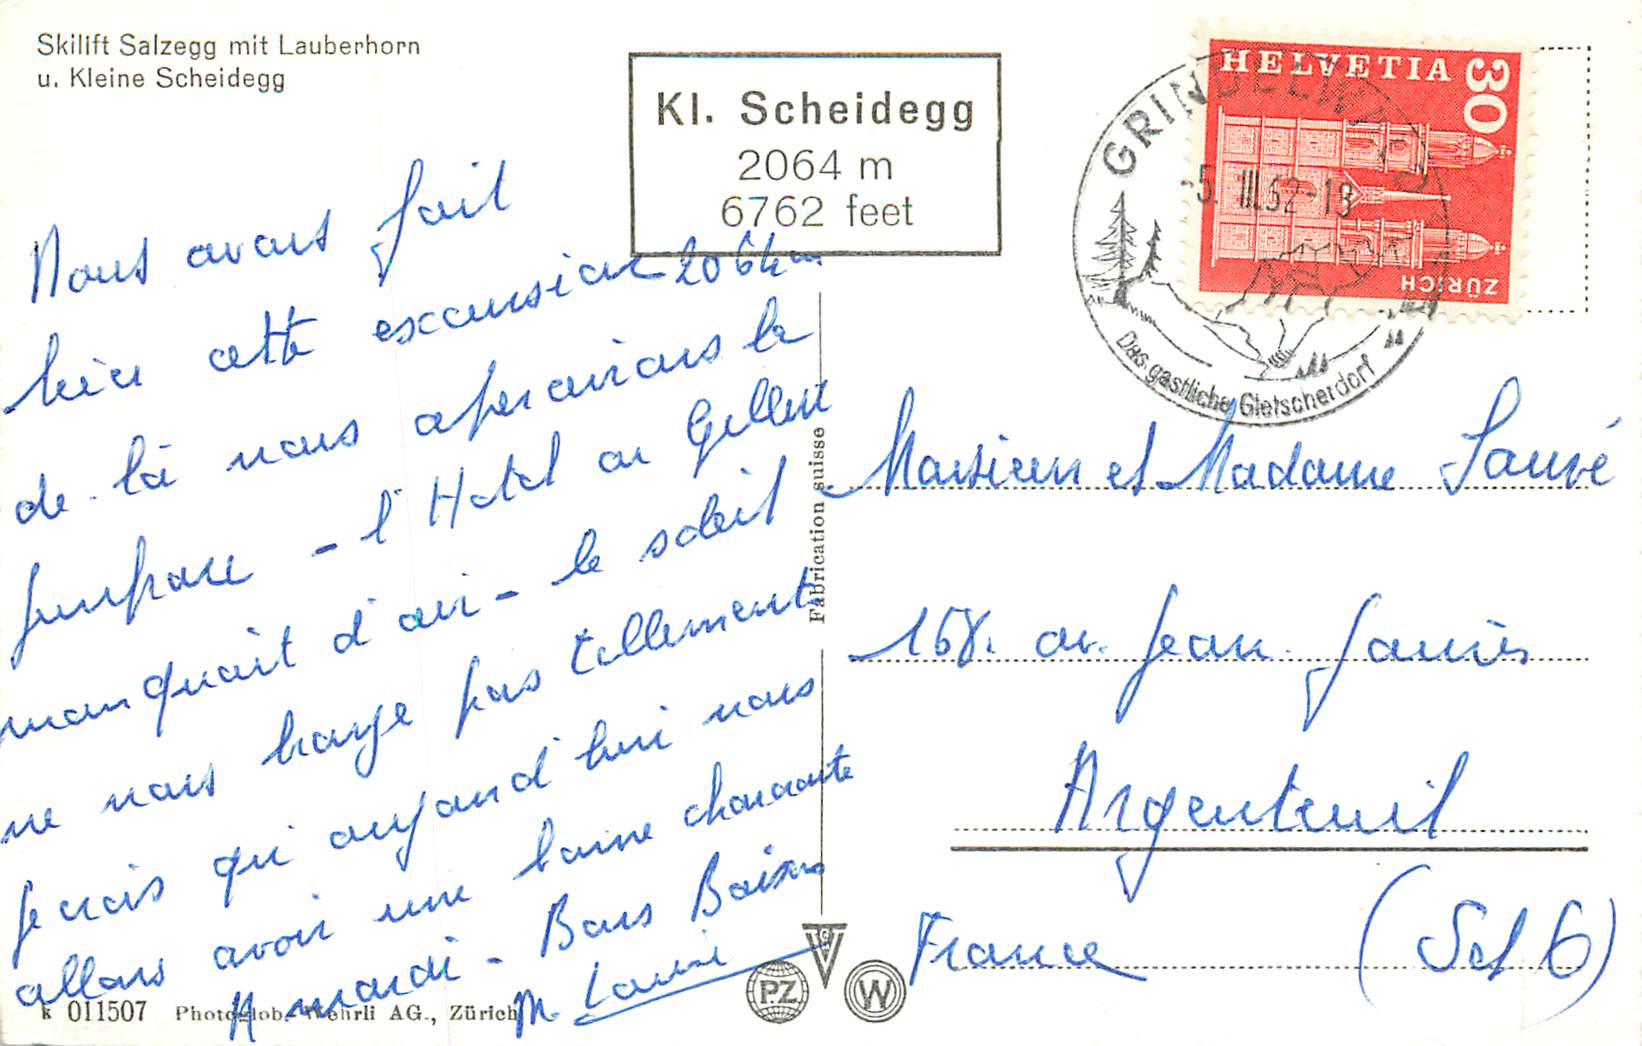 Skilift Salzegg mit Lauberhorn
u. Kleine Scheidegg
Kl. Scheidegg
2064 m
6762 feet
HELVETIA
30
ZÜRICH
GRINDELWALD
-5. III. 62-18
Das gastliche Gletscherdorf
Nous avons fait
hier cette excursion 2064m
de là nous apercevions le
- l'Hotel on
manquait d'air - le soleil
ne nous pas tellement
je crois qu'aujourd'hui nous
allons avoir une bonne
A mardi - Bons Baisers
M. Louise
Fabrication suisse
Monsieur et Madame Sauvé
158. av. Jean. Jaurès
Argenteuil
France (Set O)
k 011507 Photoglob-Wehrli AG., Zürich
PZ
W